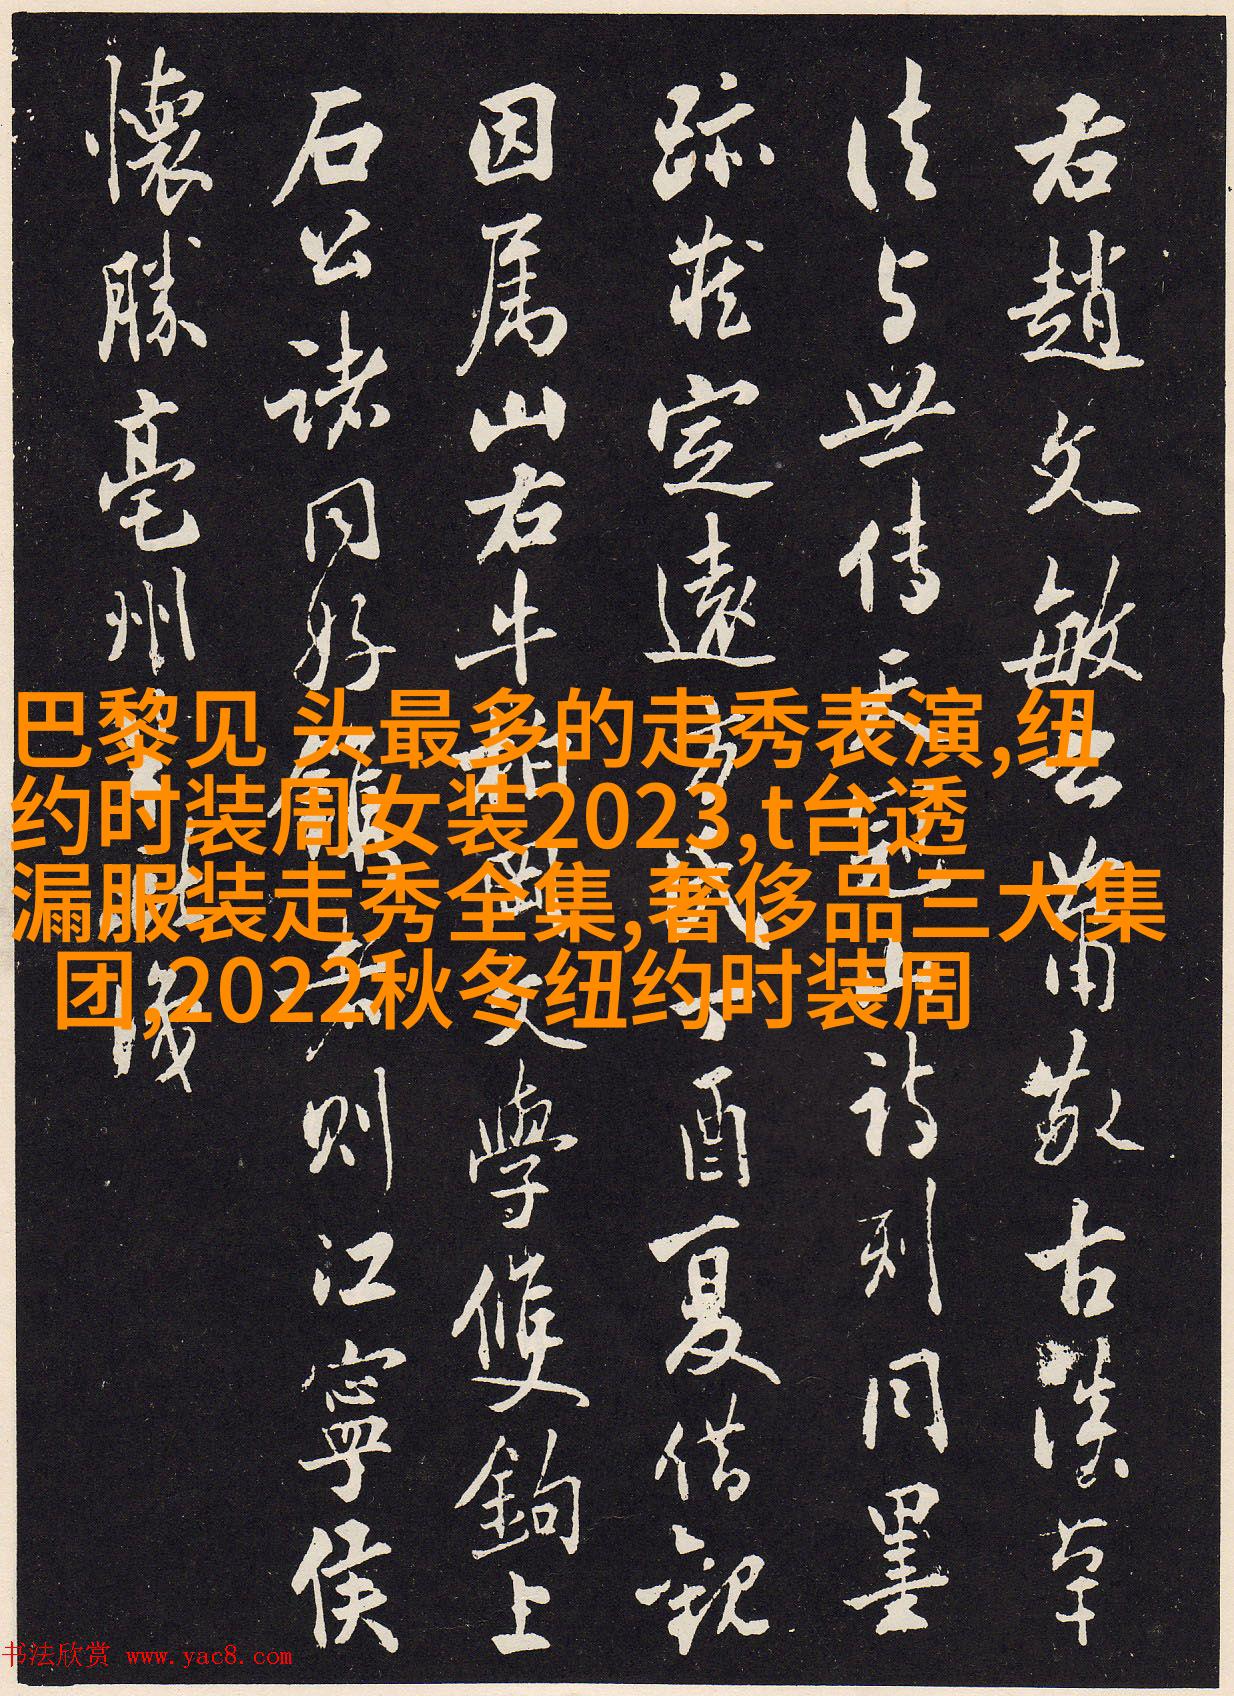 右趙文敏古草
法与世傳天冠山詩刻同墨
跡藏定遠方氏丁酉夏借観
因属山右牛文學鉤上
石公諸同好者則江寧侯
懷勝亳州識
巴黎见 头最多的走秀表演,纽
约时装周女装2023,t台透
漏服装走秀全集,奢侈品三大集
团,2022秋冬纽约时装周
书法欣赏 www.yac8.com